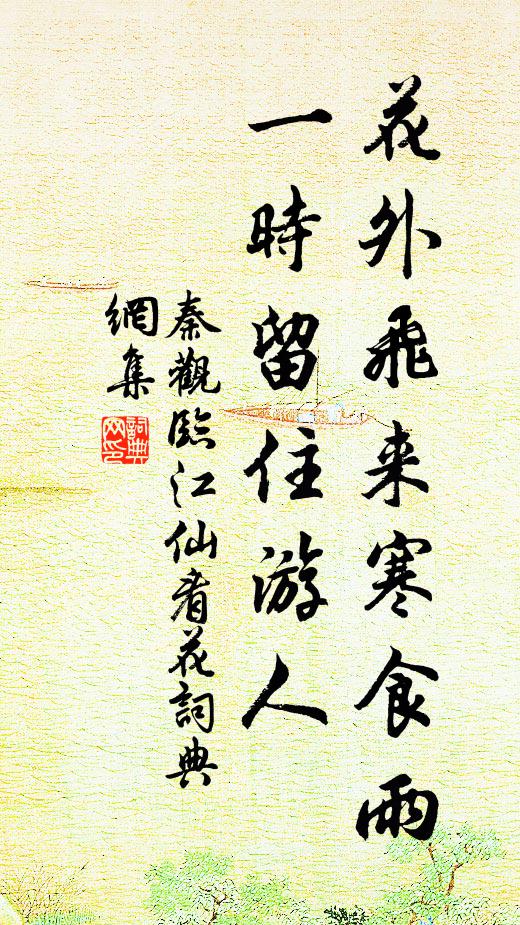 花外飛来寒食雨
一時留住游人
秦觀臨江仙看花詞典
網集
詞典
网印